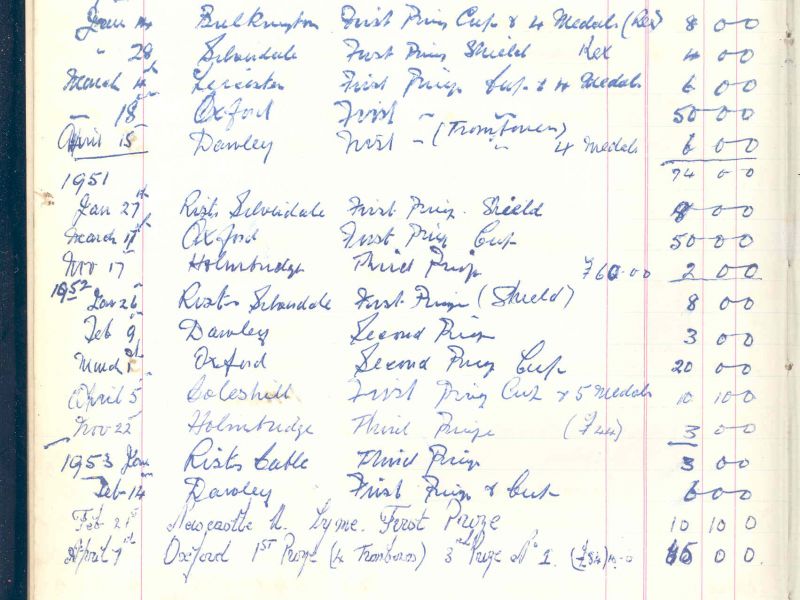 Jan 14 Bulkington First Prize Cup & 4 Medals (Rex) 8 00
" 28 Silverdale First Prize Shield Rex 4 00
March 4th Leicester First Prize Cup & 4 Medals 6 00
" 18th Oxford First " 50 00
April 15 Dawley First " (Trom Tovens) " 4 Medals 6 00
74 00
1951
Jan 27th Rists Silverdale First Prize Shield 8 00
March Oxford First Prize Cup 50 00
Nov 17th Holmbridge Third Prize £60-00 2 00
1952 Jan 26th Rists Silverdale First Prize (Shield) 8 00
Feb 9th Dawley Second Prize 3 00
March 1st Oxford Second Prize Cup 20 00
April 5th Coleshill First Prize Cup & 5 Medals 10 10 0
Nov 22 Holmbridge Third Prize (£44) 3 00
1953 Jan Rists Cable Third Prize 3 00
Feb 14th Dawley First Prize & Cup 6 00
Feb 21st Newcastle U. Lyme. First Prize 10 10 0
April Oxford 1st Prize (4 Trombones) 3rd Prize No 1. (£84) 0 0